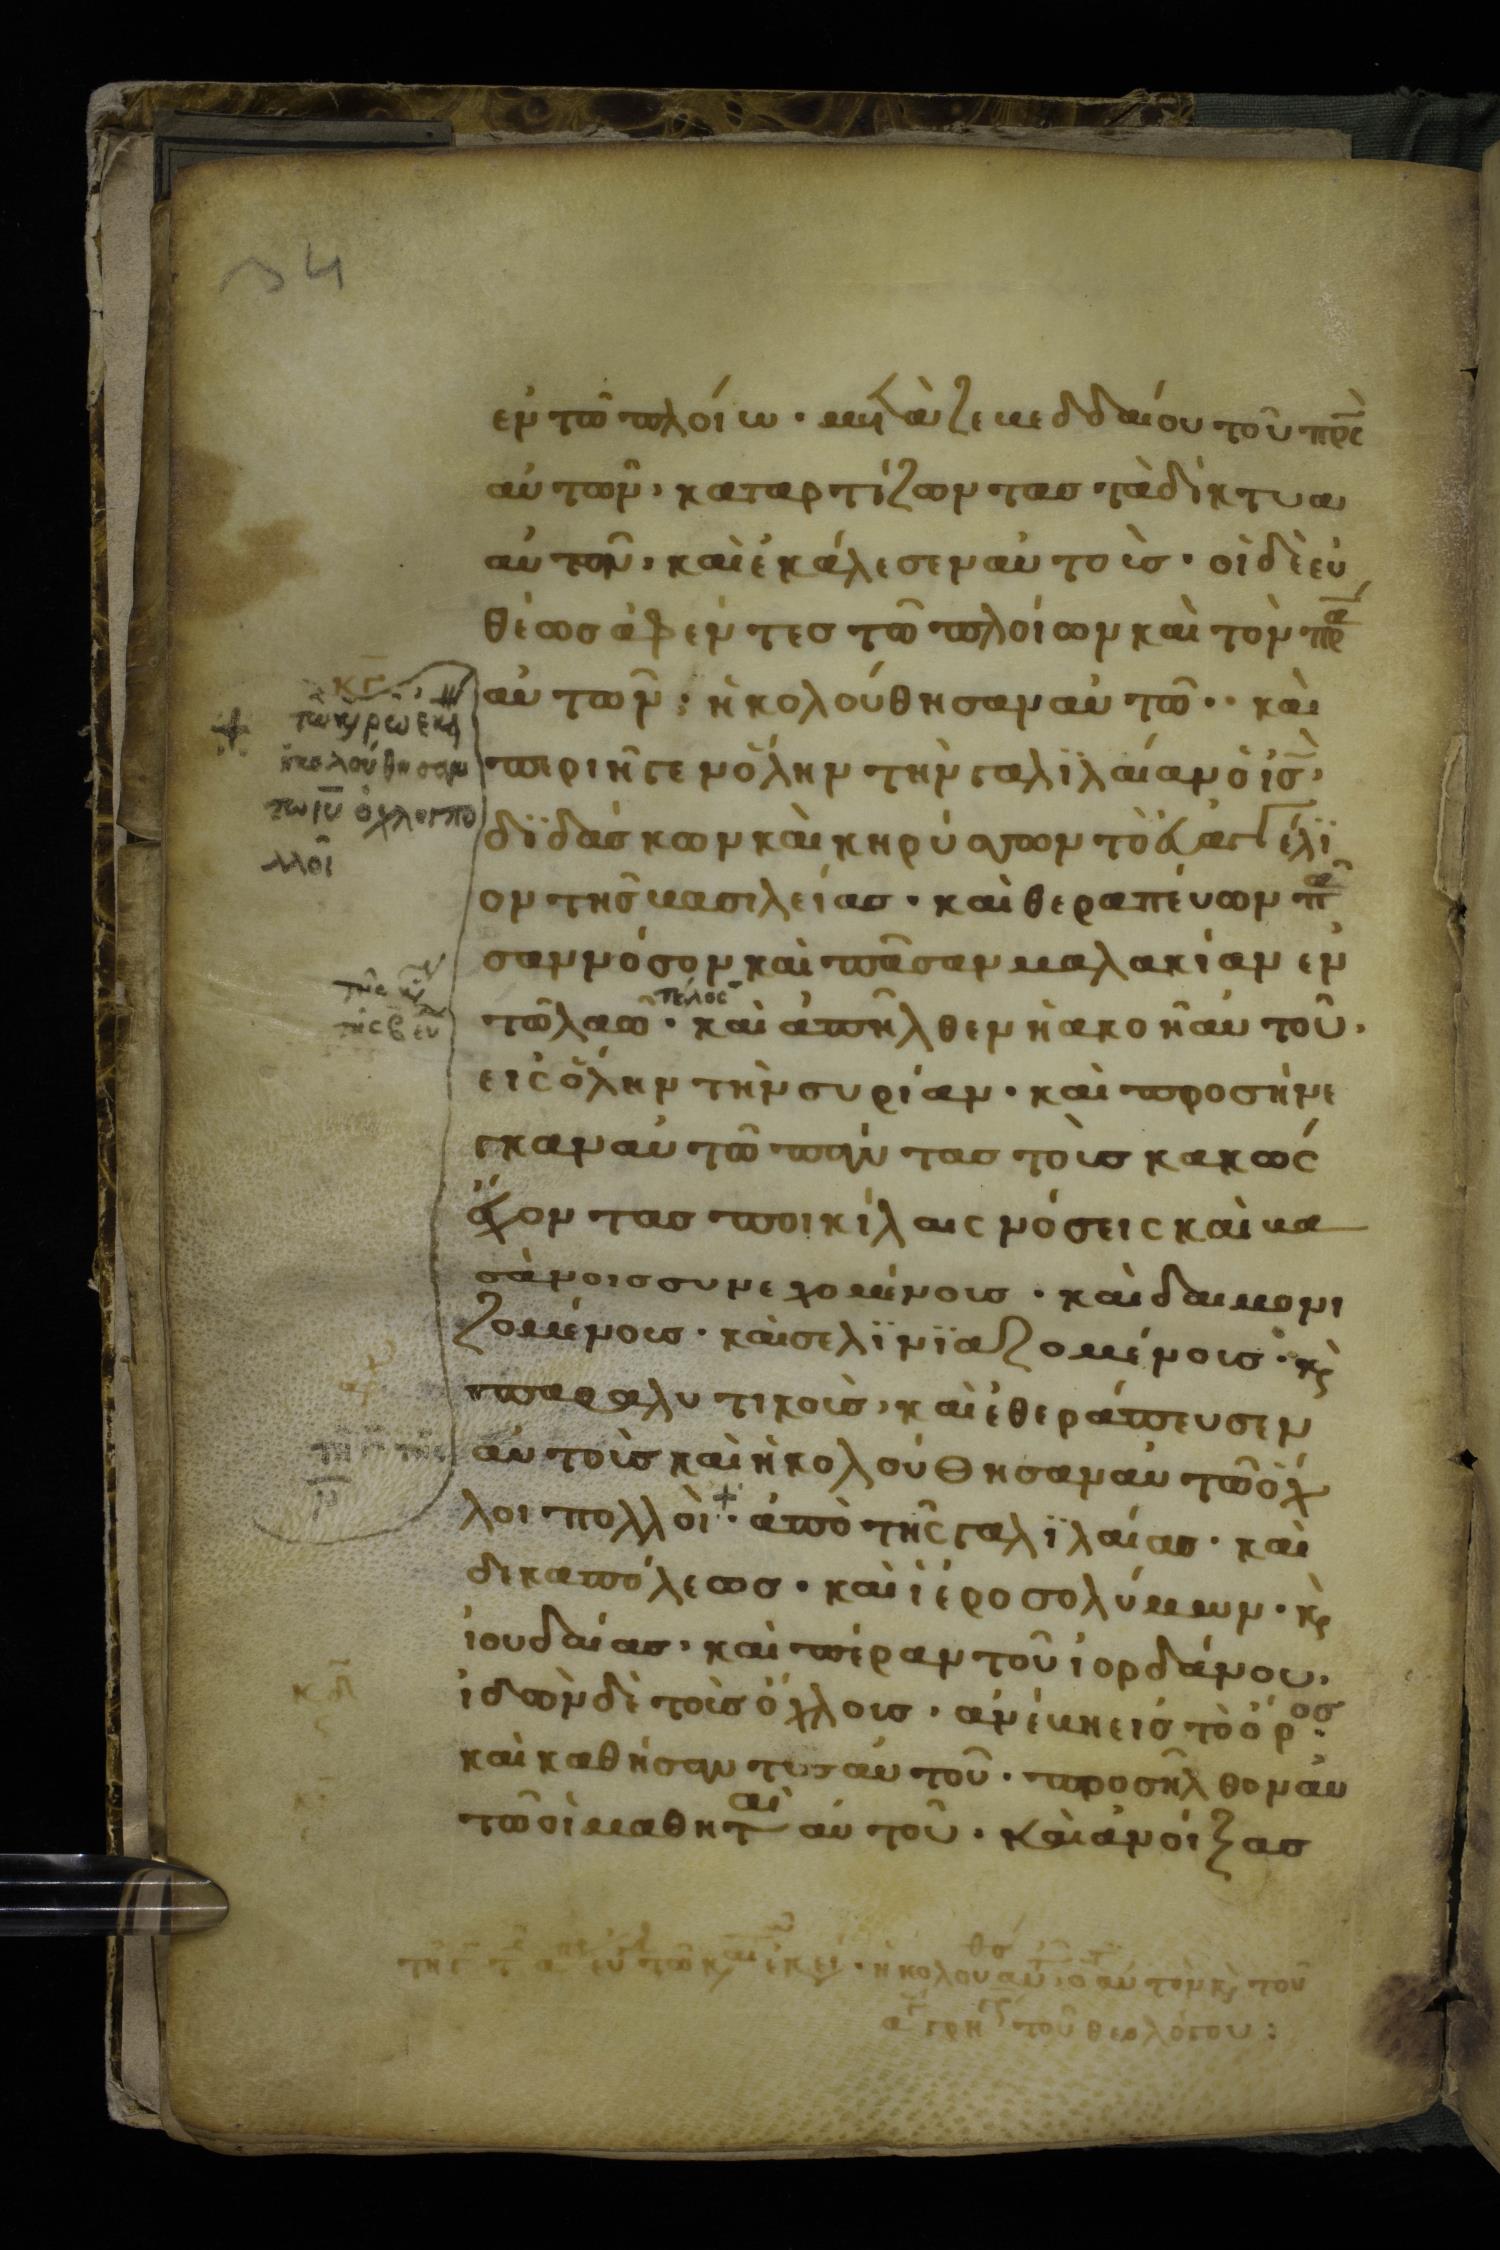 ἐν τῶ πλοίω · μετὰ ζεβεδδαίου τοῦ πρ̅ς
αὐτῶν, καταρτίζωντασ τὰ δίκτυα
αὐτῶν, καὶ ἐκάλεσεν αὐτοὺσ · οἱ δὲ εὐ
θέωσ ἀφέντεσ τῶ πλοίων καὶ τὸν πρ̅α
αὐτῶν · ἠκολούθησαν αὐτῶ · · καὶ
περιῆγεν ὅλην τὴν γαλϊλαίαν ὁ ἰσ̅,
δϊδάσκων καὶ κηρύσσων τὸ εὐαγγέλϊ
ον τῆσ βασιλείασ · καὶ θεραπέυων πᾶ
σαν νόσον καὶ πᾶσαν μαλακίαν ἐν
τέλοσ
τῶ λαῶ · καὶ ἀπῆλθεν ἡ ακοὴ αὐτοῦ,
εἰς ὅλην τὴν συρίαν · καὶ προσήνε
γκαν αὐτῶ πάντασ τοὺσ κακῶς
ἔχοντασ ποικίλαις νόσεις καὶ βα
σάνοισ συνεχομένουσ · καὶ δαιμονι
ζομένουσ · καὶ σελϊνϊαζομένουσ · κὶ
παραλυτικοὺσ, καὶ ἐθεράπευσεν
αὐτοὺσ καὶ ἠκολούθησαν αὐτῶ ὄχ
λοι πολλοὶ + · ἀπὸ τῆς γαλϊλαίασ · καὶ
δεκαπόλεωσ · καὶ ἱεροσολύμων · κὶ
ἰουδαίασ, καὶ πέραν τοῦ ἰορδάνου,
ἰδὼν δὲ τοὺσ ὄχλουσ · ἀνέβη εἰσ τὸ ὄροσ ·
καὶ καθήσαντοσ αὐτοῦ · προσῆλθον αὐ
τῶ οἱ μαθηταὶ αὐτοῦ · καὶ ἀνοίξασ
+
τῶ κυρῶ ἐκεί
ἠκολούθησαν
τω ιυ̅ ὄχλοι πο
λλοὶ
34